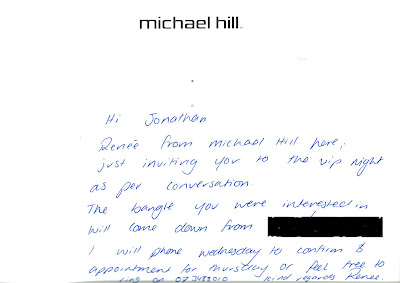 michael hill
Hi Jonathan
Renée from michael Hill here,
just inviting you to the vip night
as per conversation.
The bangle you were interested in
will come down from
I will phone wednesday to confirm
appointment for thursday or feel free to
ring on kind regards Renee.